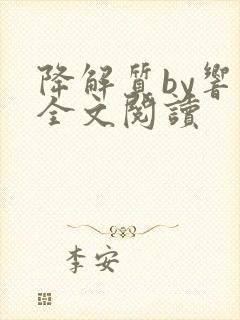 降解質by響
全文閱讀
李安